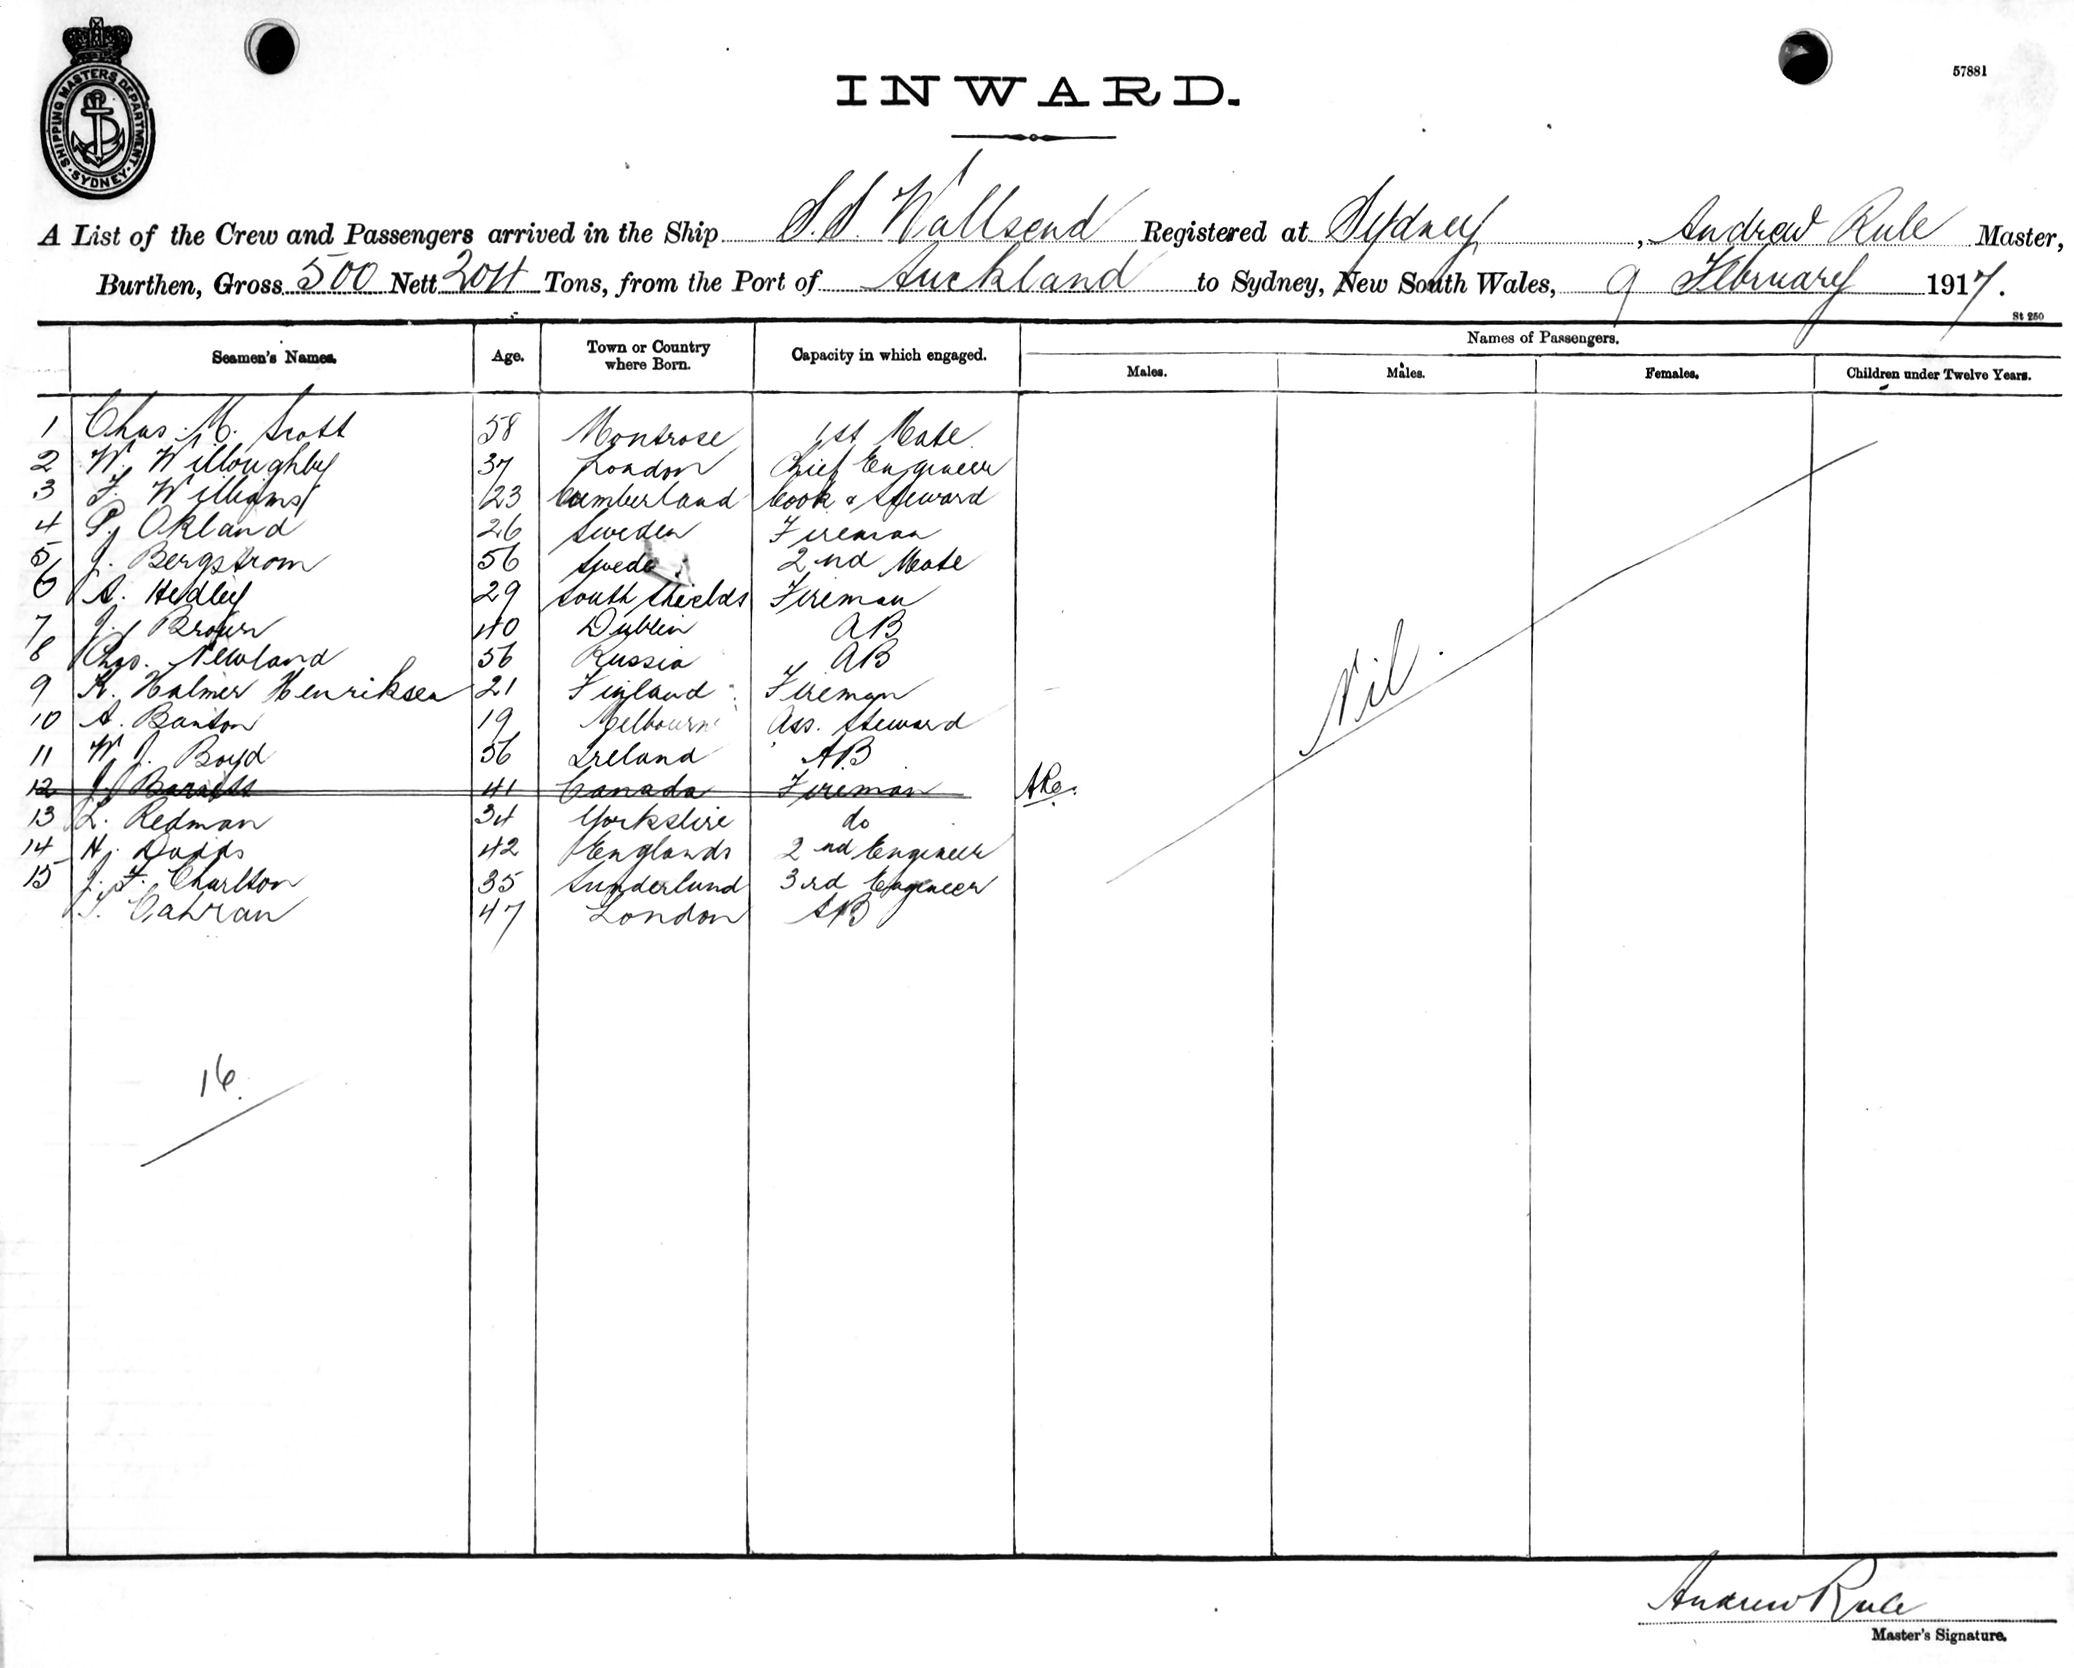 SHIPPING MASTERS DEPARTMENT. SYDNEY.
57881
INWARD.
A List of the Crew and Passengers arrived in the Ship S.S. Wallsend Registered at Sydney, Andrew Rule Master,
Burthen, Gross 500 Nett 204 Tons, from the Port of Auckland to Sydney, New South Wales, 9 February 1917.
St 250
Seamen's Names. Age. Town or Country where Born. Capacity in which engaged. Names of Passengers.
Males. Males. Females. Children under Twelve Years.
1 Chas. M. Scott 58 Montrose 1st Mate
2 W. Willoughby 37 London Chief Engineer
3 F. Williams 23 Cumberland Cook & Steward
4 P. Okland 26 Sweden Fireman
5 J. Bergstrom 56 Swede 2nd Mate
6 A. Hedley 29 South Shields Fireman
7 J. Brown 40 Dublin AB
8 Chas. Newland 56 Russia AB
9 K. Halmer Henriksen 21 Finland Fireman
10 A. Banton 19 Melbourne Ass. Steward
11 W. J. Boyd 56 Ireland AB
12 J. 41 Canada Fireman
13 L. Redman 34 Yorkshire do
14 H. Dodds 42 England 2nd Engineer
15 J. F. Charlton 35 Sunderland 3rd Engineer
T. Cahran 47 London AB
Nil.
16.
Andrew Rule
Master's Signature.